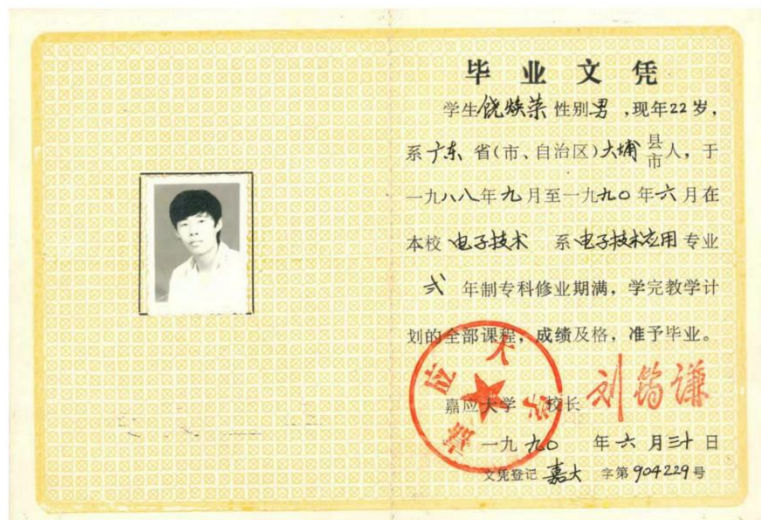 毕业文凭
学生饶焕荣性别男,现年22岁,
系广东省(市、自治区)大埔县市人,于
一九八八年九月至一九九〇年六月在
本校电子技术系电子技术应用专业
弍年制专科修业期满,学完教学计
划的全部课程,成绩及格,准予毕业。
嘉应大学 校长 刘筠谦
嘉应大学
一九九〇年六月三十日
文凭登记嘉大字第904229号